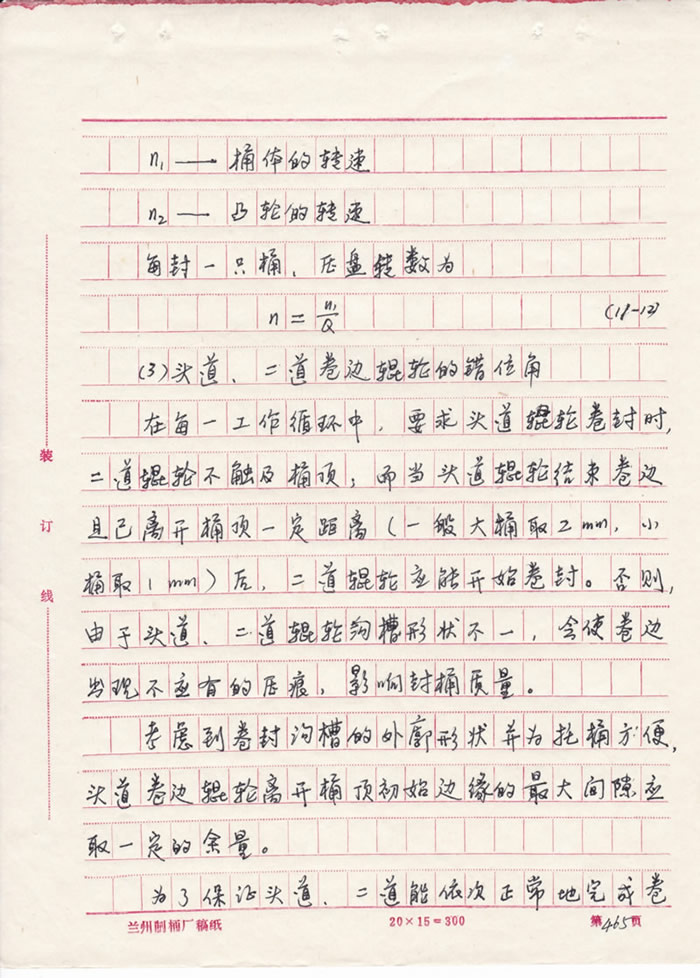 n₁ —— 桶体的转速
n₂ —— 凸轮的转速
每封一只桶、压盘转数为
n = n₁/Q (18-12)
(3)头道、二道卷边辊轮的错位角
在每一工作循环中，要求头道辊轮卷封时，
二道辊轮不触及桶顶；而当头道辊轮结束卷边
且已离开桶顶一定距离（一般大桶取2mm，小
桶取1mm）后，二道辊轮应能开始卷封。否则，
由于头道、二道辊轮沟槽形状不一，会使卷边
出现不应有的压痕，影响封桶质量。
考虑到卷封沟槽的外廓形状并为托桶方便，
头道卷边辊轮离开桶顶初始边缘的最大间隙应
取一定的余量。
为了保证头道、二道能依次正常地完成卷
装
订
线
兰州制桶厂稿纸 20×15=300 第465页